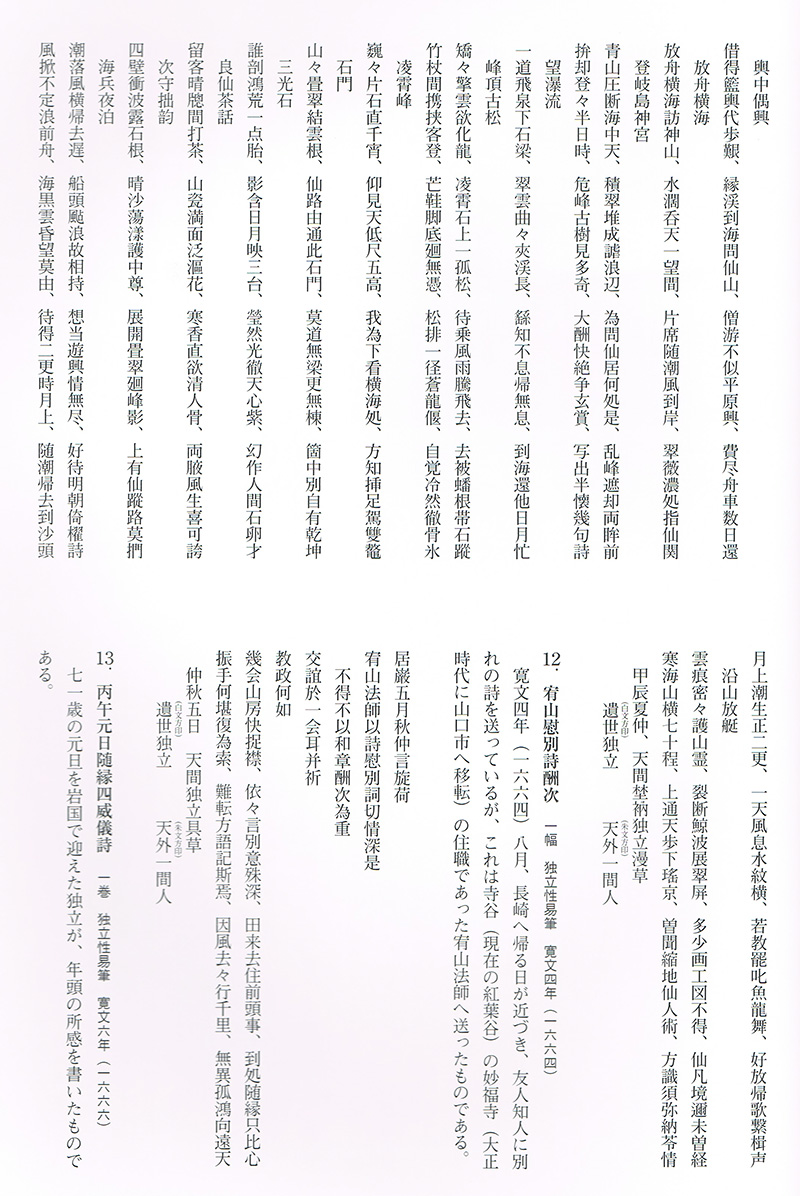 興中偶興
借得籃輿代歩艱、縁渓到海問仙山、僧游不似平原興、費尽舟車数日還
放舟横海
放舟横海訪神山、水濶呑天一望間、片席随潮風到岸、翠薇濃処指仙関
登岐島神宮
青山圧断海中天、積翠堆成謔浪辺、為問仙居何処是、乱峰遮却両眸前
拚却登々半日時、危峰古樹見多奇、大酬快絶争玄賞、写出半懐幾句詩
望瀑流
一道飛泉下石梁、翠雲曲々夾渓長、繇知不息帰無息、到海還他日月忙
峰頂古松
矯々擎雲欲化龍、凌霄石上一孤松、待乗風雨騰飛去、去被蟠根帯石蹤
竹杖間携挟客登、芒鞋脚底廻無憑、松排一径蒼龍偃、自覚冷然徹骨氷
凌霄峰
巍々片石直千宵、仰見天低尺五高、我為下看横海処、方知挿足駕雙鼇
石門
山々畳翠結雲根、仙路由通此石門、莫道無梁更無棟、箇中別自有乾坤
三光石
誰剖鴻荒一点胎、影含日月映三台、瑩然光徹天心紫、幻作人間石卵才
良仙茶話
留客晴牕間打茶、山瓷満面泛漚花、寒香直欲清人骨、両腋風生喜可誇
次守拙韵
四壁衝波露石根、晴沙蕩漾護中尊、展開畳翠廻峰影、上有仙蹤路莫捫
海兵夜泊
潮落風横帰去遅、船頭颭浪故相持、想当遊興情無尽、好待明朝倚櫂詩
風掀不定浪前舟、海黒雲昏望莫由、待得二更時月上、随潮帰去到沙頭
月上潮生正二更、一天風息水紋横、若教罷叱魚龍舞、好放帰歌繋楫声
沿山放艇
雲痕密々護山霊、裂断鯨波展翠屏、多少画工図不得、仙凡境邇未曽経
寒海山横七十程、上通天歩下瑤京、曽聞縮地仙人術、方識須弥納芥情
甲辰夏仲、天間埜衲独立漫草
(白文方印)
遺世独立
(朱文方印)
天外一間人
12．宥山慰別詩酬次　一幅　独立性易筆　寛文四年（一六六四）
寛文四年（一六六四）八月、長崎へ帰る日が近づき、友人知人に別
れの詩を送っているが、これは寺谷（現在の紅葉谷）の妙福寺（大正
時代に山口市へ移転）の住職であった宥山法師へ送ったものである。
居巌五月秋仲言旋荷
宥山法師以詩慰別詞切情深是
不得不以和章酬次為重
交誼於一会耳并祈
教政何如
幾会山房快捉襟、依々言別意殊深、田来去住前頭事、到処随縁只比心
振手何堪復為索、難転方語記斯焉、因風去々行千里、無異孤鴻向遠天
仲秋五日　天間独立具草
(白文方印)
遺世独立
(朱文方印)
天外一間人
13．丙午元日随縁四威儀詩　一巻　独立性易筆　寛文六年（一六六六）
七一歳の元旦を岩国で迎えた独立が、年頭の所感を書いたもので
ある。